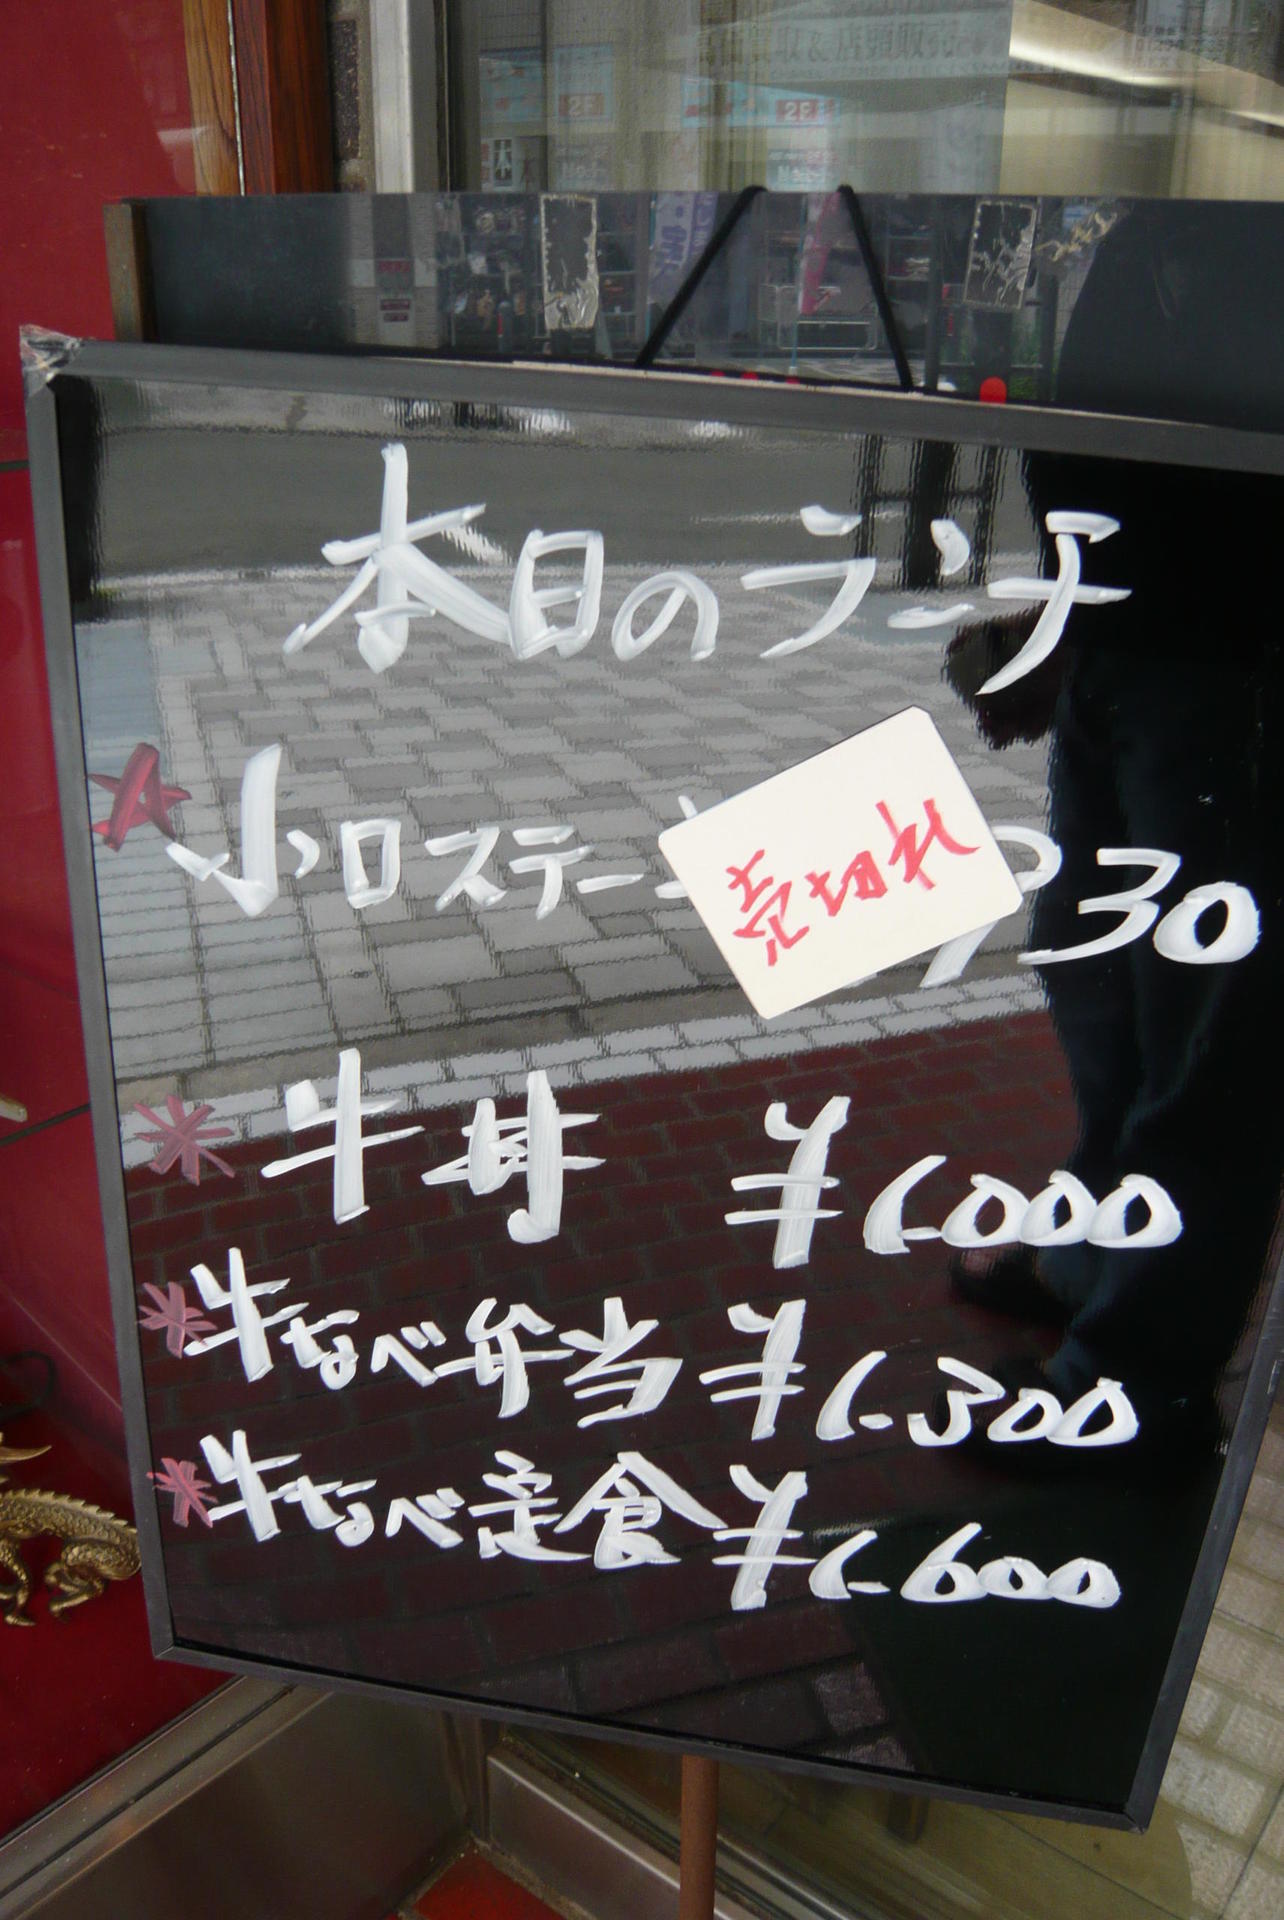 2F 2F
本日のランチ
小口ステー
売切れ
930
牛丼 ¥1.000
牛なべ弁当 ¥1.300
牛なべ定食 ¥1.600